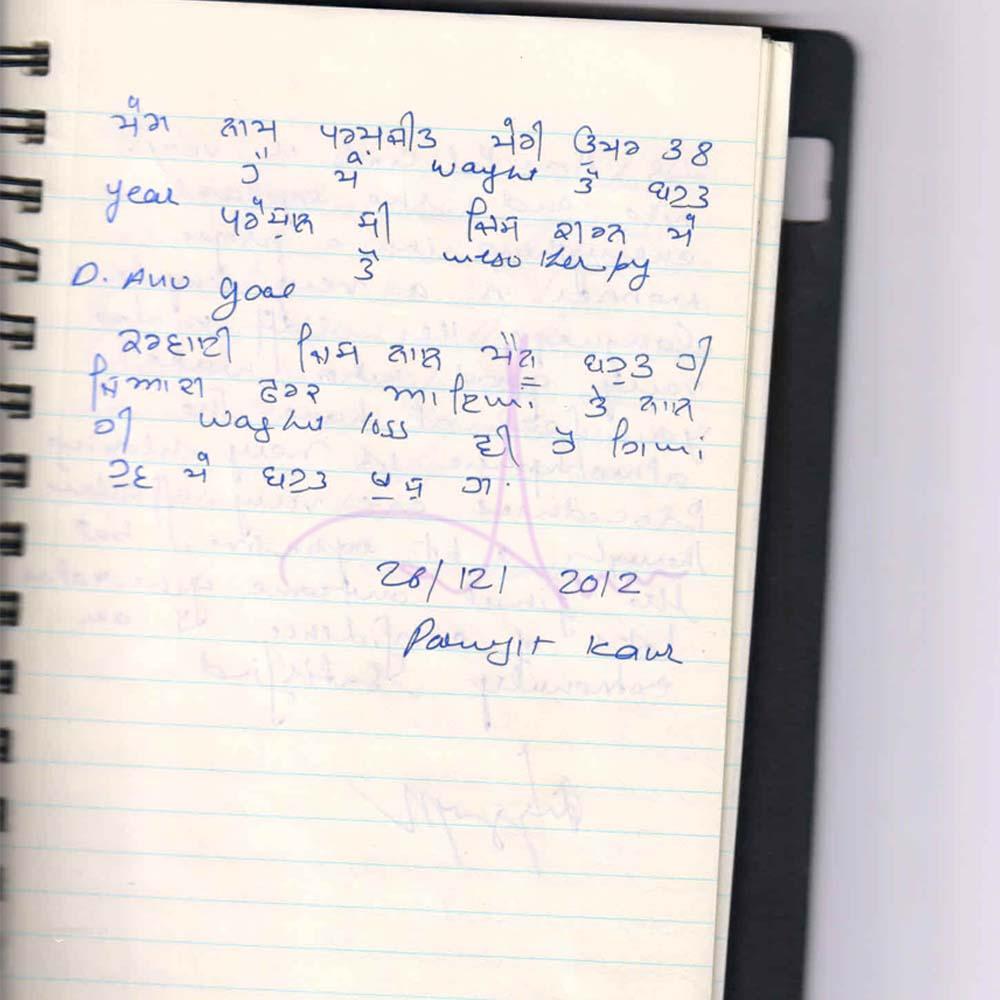 ਮੇਰਾ ਨਾਮ ਪਰਮਜੀਤ ਮੇਰੀ ਉਮਰ 38
year ਹੈ ਮੈਂ waght ਤੋਂ ਬਹੁਤ
ਪਰੇਸ਼ਾਨ ਸੀ ਜਿਸ ਕਾਰਨ ਮੈਂ
D. Anu goal ਤੋਂ meso therpy
ਕਰਵਾਈ ਜਿਸ ਨਾਲ ਮੈਨੂੰ ਬਹੁਤ ਹੀ
ਜਿਆਦਾ ਫਰਕ ਆਇਆ ਤੇ ਨਾਲ
ਹੀ waght loss ਵੀ ਹੋ ਗਿਆ
ਹੁਣ ਮੈਂ ਬਹੁਤ ਖੁਸ਼ ਹਾਂ.
28/12/ 2012
Paramjit Kaur